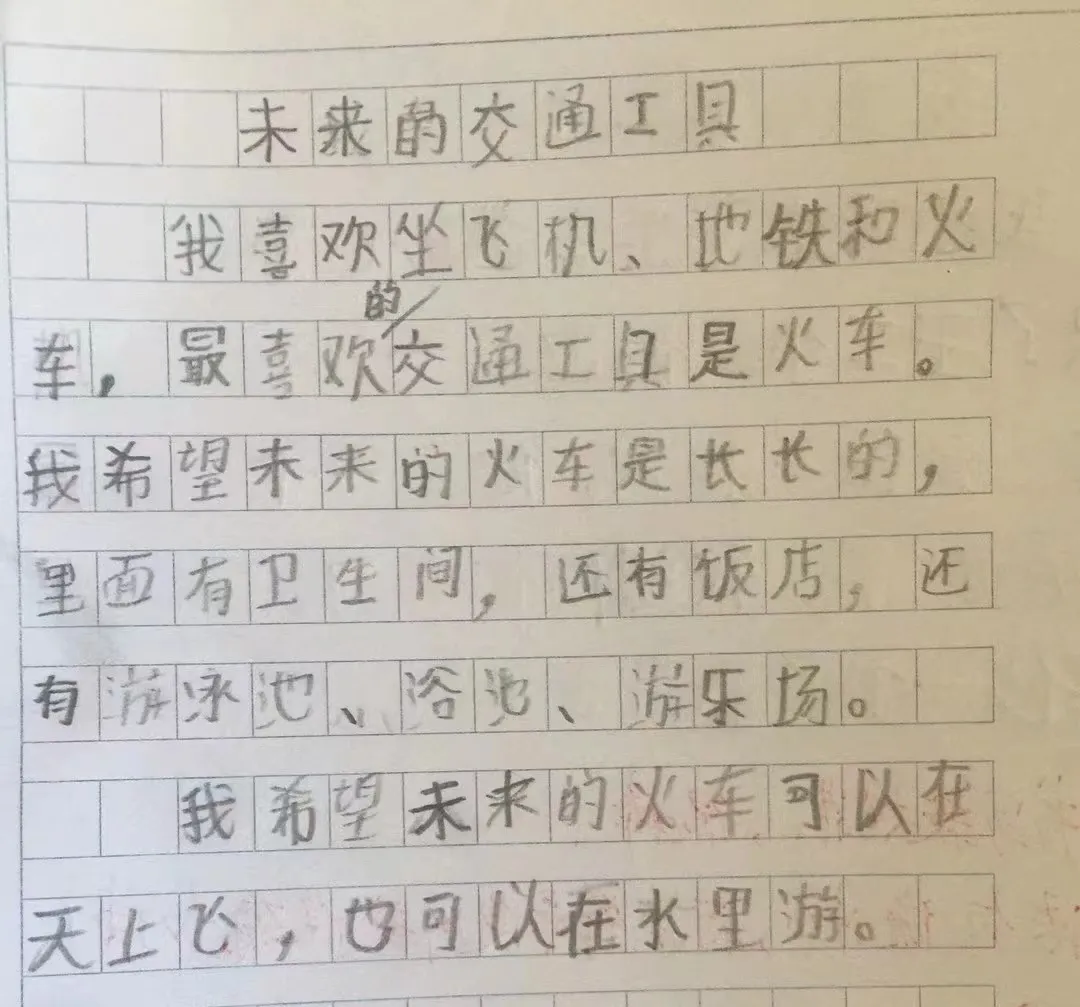 未来的交通工具
我喜欢坐飞机、地铁和火
车,最喜欢的交通工具是火车。
我希望未来的火车是长长的,
里面有卫生间,还有饭店,还
有游泳池、浴池、游乐场。
我希望未来的火车可以在
天上飞,也可以在水里游。